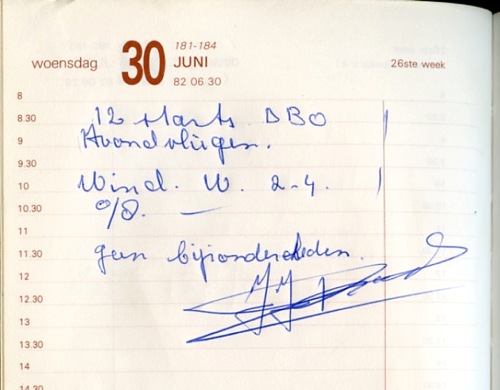 woensdag 30 181-184
JUNI
82 06 30
26ste week
8
8.30
12 starts DBO
9
Avondvliegen.
9.30
10
Wind. W. 2-4.
10.30
0/8. —
11
11.30
geen bijzonderheden.
12
12.30
13
13.30
14
14.30